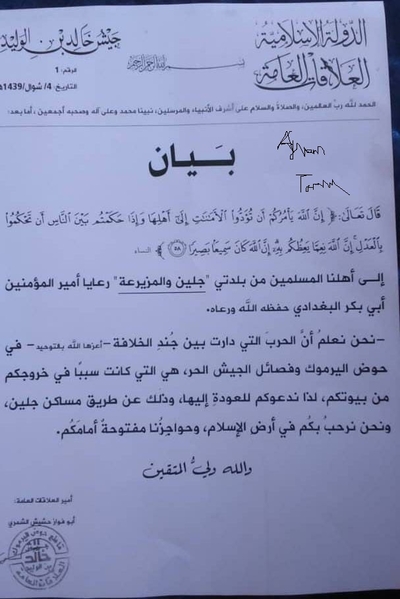 الدولة الإسلامية
العلاقات العامة
بسم الله الرحمن الرحيم
جيش خالد بن الوليد
الرقم: 1
التاريخ: 4/ شوال/1439هـ
الحمد لله رب العالمين، والصلاة والسلام على أشرف الأنبياء والمرسلين، نبينا محمد وعلى آله وصحبه أجمعين، أما بعد:
بَـيان
قال تعالى: ﴿ إِنَّ اللَّهَ يَأْمُرُكُمْ أَنْ تُؤَدُّوا الْأَمَانَاتِ إِلَى أَهْلِهَا وَإِذَا حَكَمْتُمْ بَيْنَ النَّاسِ أَنْ تَحْكُمُوا
بِالْعَدْلِ إِنَّ اللَّهَ نِعِمَّا يَعِظُكُمْ بِهِ إِنَّ اللَّهَ كَانَ سَمِيعًا بَصِيرًا ٥٨ ﴾ النساء
إلى أهلنا المسلمين من بلدتي "جلين والمزيرعة" رعايا أمير المؤمنين
أبي بكر البغدادي حفظه الله ورعاه.
-نحن نعلمُ أنَّ الحربَ التي دارت بين جُندِ الخلافة -أعزها الله بالتوحيد- في
حوض اليرموك وفصائل الجيش الحر، هي التي كانت سببًا في خروجكم
من بيوتكم، لذا ندعوكم للعودةِ إليها، وذلك عن طريق مساكن جلين،
ونحن نرحبُ بكُم في أرض الإسلام، وحواجزُنا مفتوحةٌ أمامَكُم.
والله وليُّ المتقين
أمير العلاقات العامة:
أبو فواز حشيش الشمري
خالد
بن الوليد
العلاقات العامة